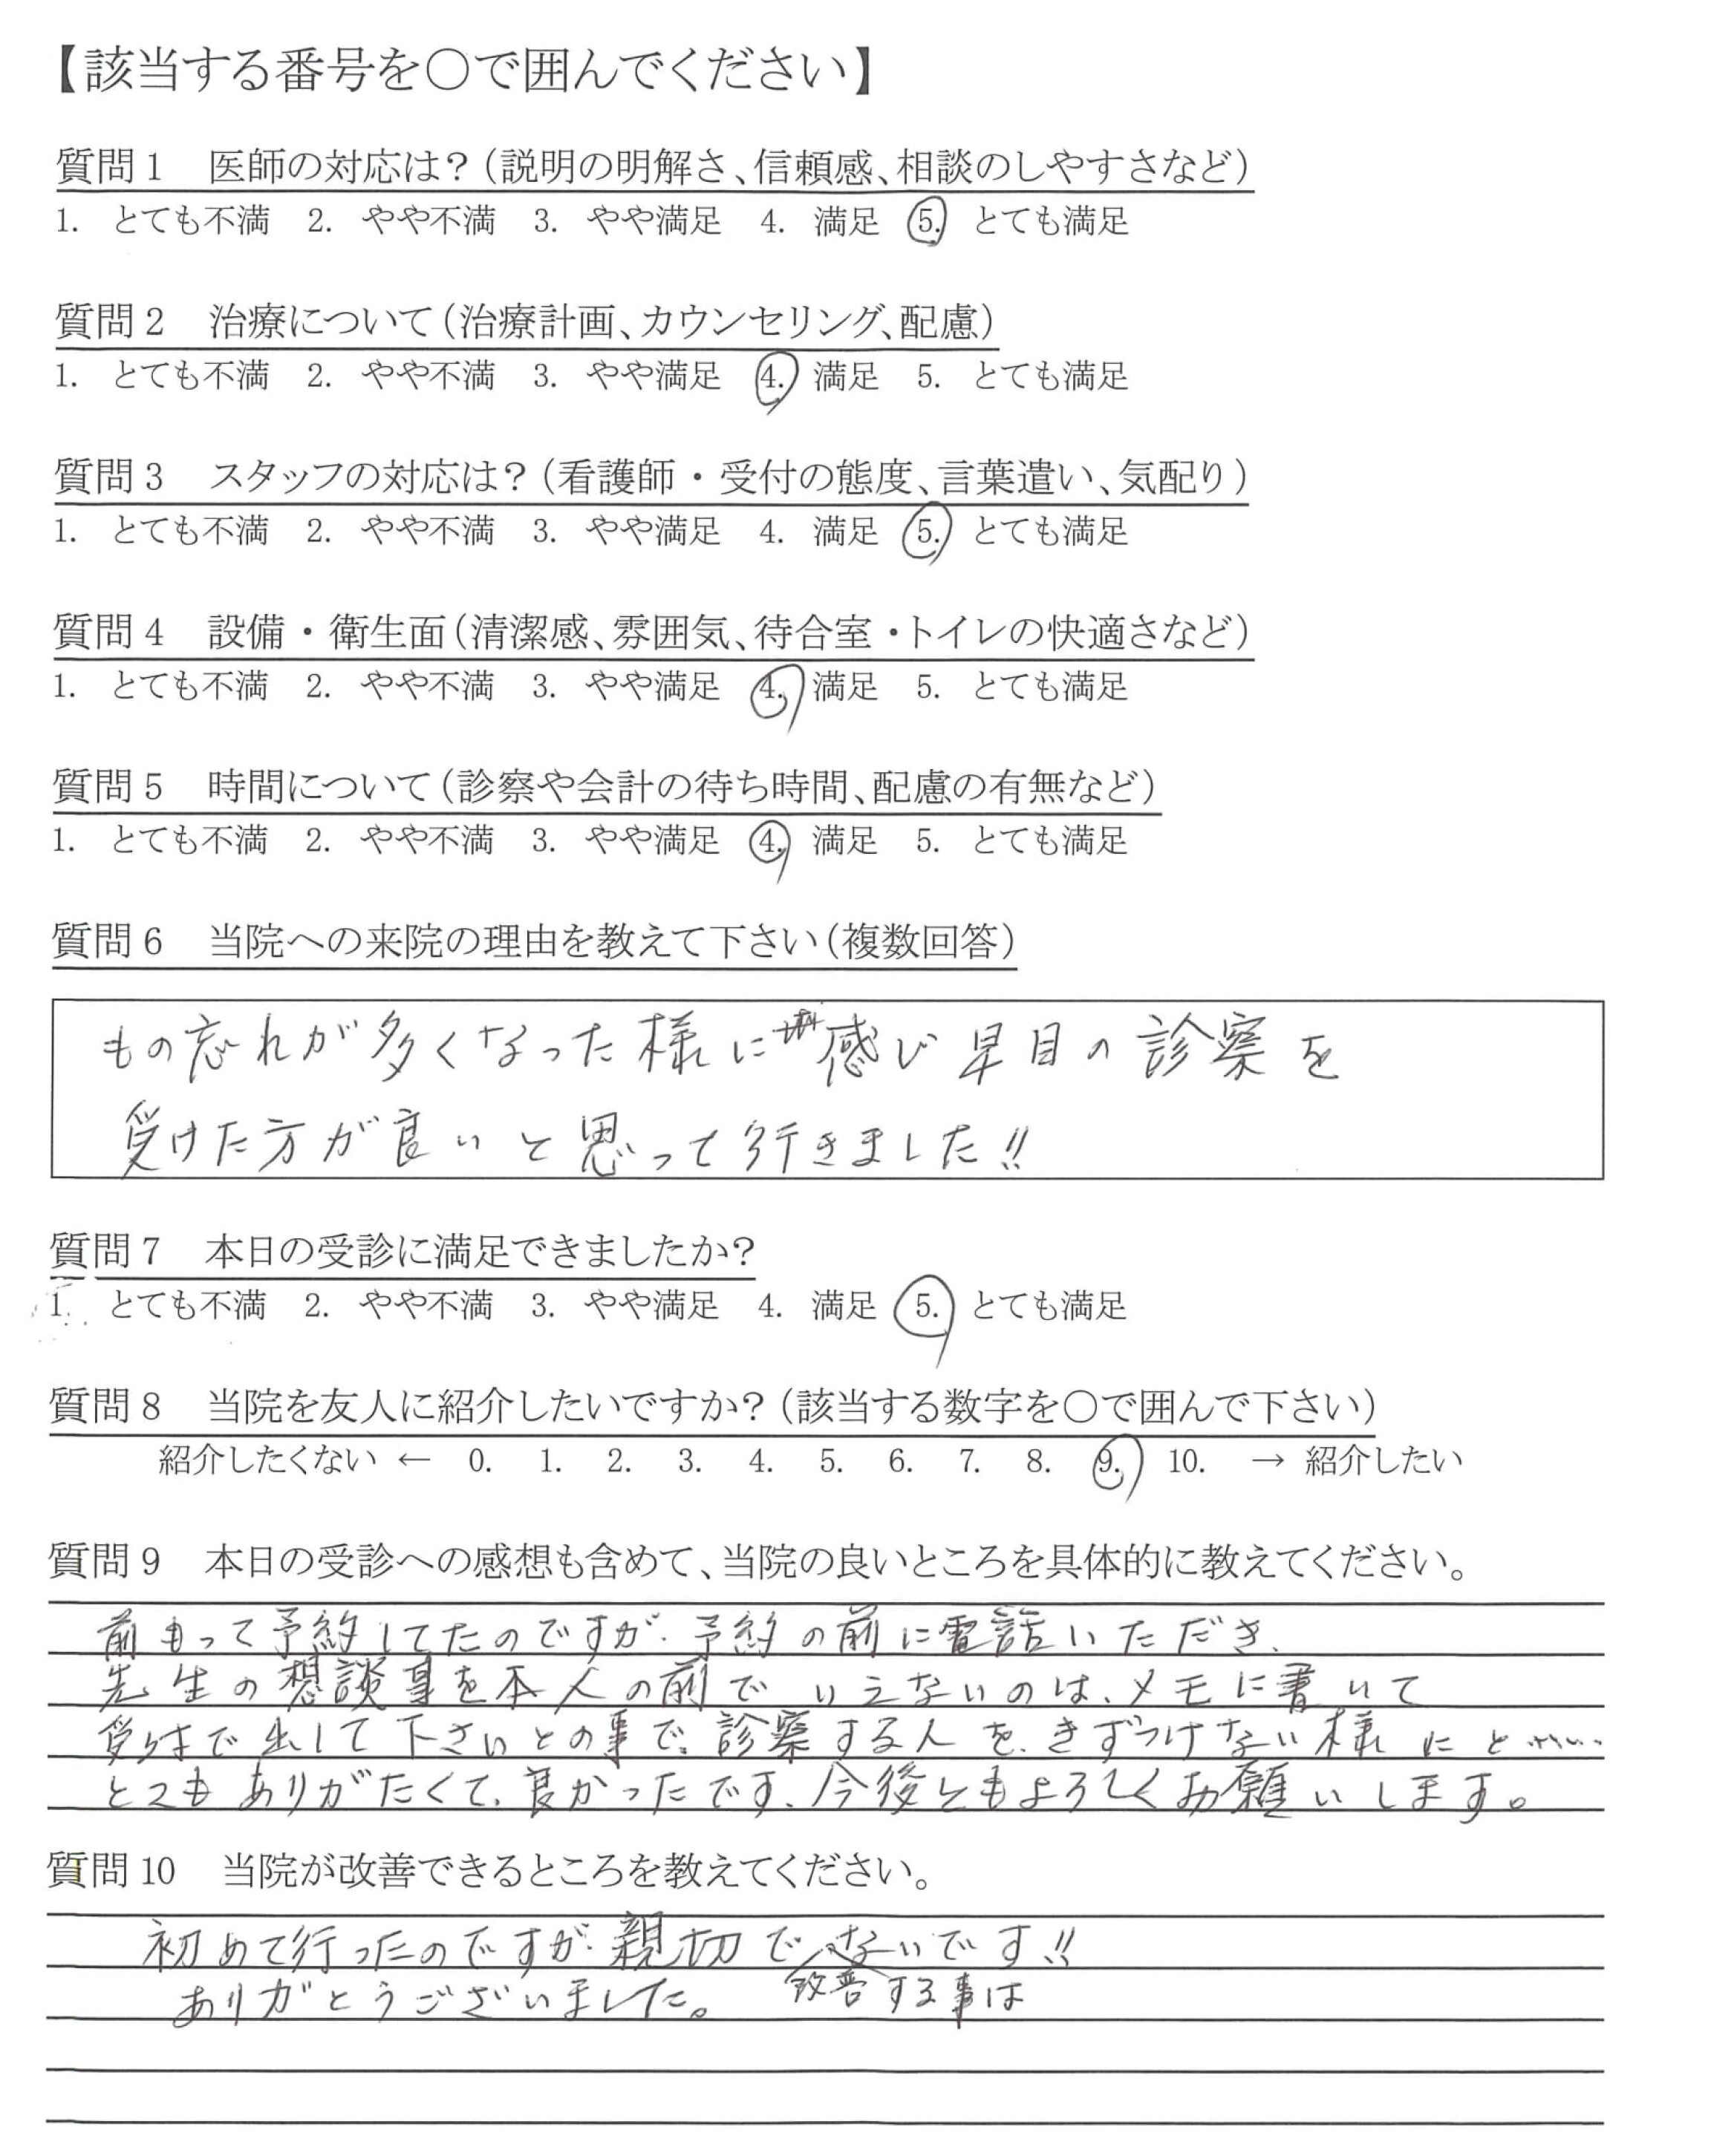 【該当する番号を〇で囲んでください】
質問1 医師の対応は？（説明の明解さ、信頼感、相談のしやすさなど）
1. とても不満 2. やや不満 3. やや満足 4. 満足 5. とても満足
質問2 治療について（治療計画、カウンセリング、配慮）
1. とても不満 2. やや不満 3. やや満足 4. 満足 5. とても満足
質問3 スタッフの対応は？（看護師・受付の態度、言葉遣い、気配り）
1. とても不満 2. やや不満 3. やや満足 4. 満足 5. とても満足
質問4 設備・衛生面（清潔感、雰囲気、待合室・トイレの快適さなど）
1. とても不満 2. やや不満 3. やや満足 4. 満足 5. とても満足
質問5 時間について（診察や会計の待ち時間、配慮の有無など）
1. とても不満 2. やや不満 3. やや満足 4. 満足 5. とても満足
質問6 当院への来院の理由を教えて下さい（複数回答）
もの忘れが多くなった様に感じ早目の診察を
受けた方が良いと思って行きました!!
質問7 本日の受診に満足できましたか？
1. とても不満 2. やや不満 3. やや満足 4. 満足 5. とても満足
質問8 当院を友人に紹介したいですか？（該当する数字を〇で囲んで下さい）
紹介したくない ← 0. 1. 2. 3. 4. 5. 6. 7. 8. 9. 10. → 紹介したい
質問9 本日の受診への感想も含めて、当院の良いところを具体的に教えてください。
前もって予約してたのですが、予約の前に電話いただき、
先生の想談事を本人の前でいえないのは、メモに書いて
受付で出して下さいとの事で、診察する人を、きずつけない様にと……
とてもありがたくて、良かったです、今後ともよろしくお願いします。
質問10 当院が改善できるところを教えてください。
初めて行ったのですが、親切で改善する事はないです!!
ありがとうございました。